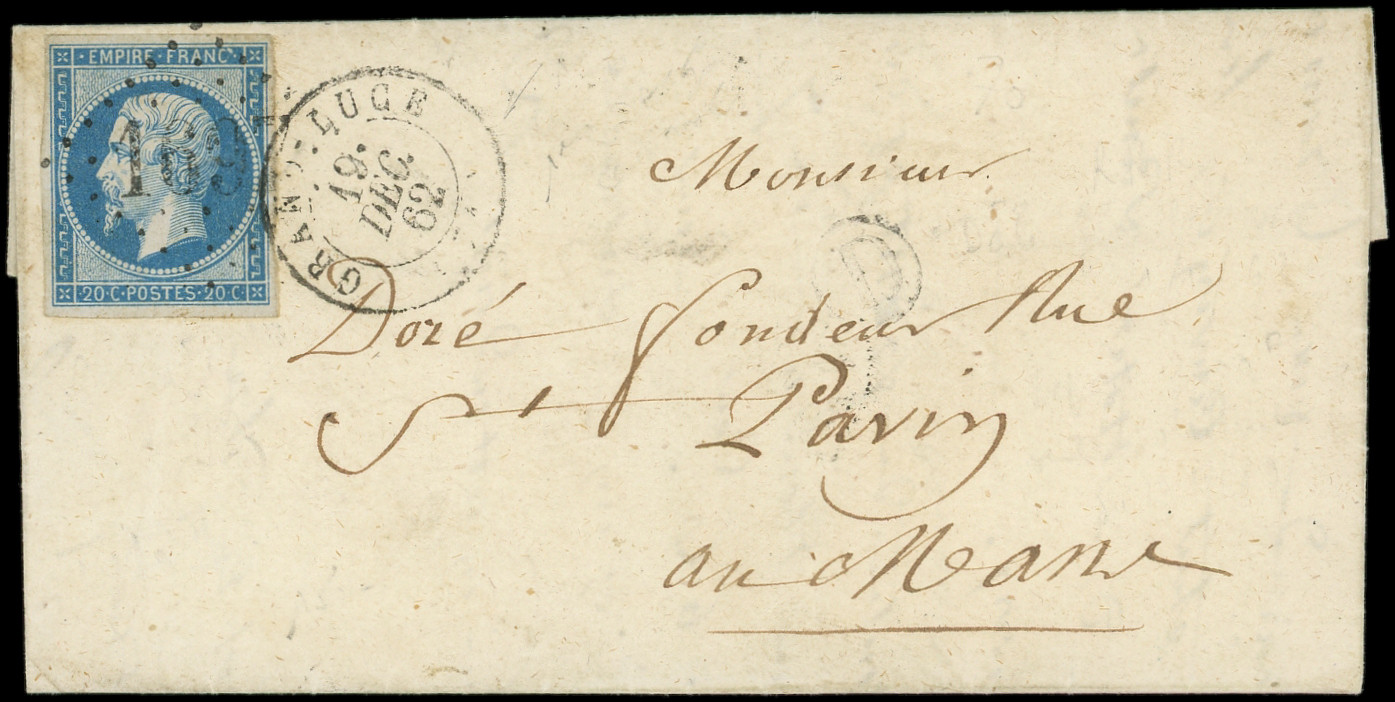 EMPIRE · FRANC
20 · C · POSTES · 20 · C
GRAND-LUCE
19.
DEC.
62
Monsieur
D
Doré fondeur Rue
St Pavin
au Mans